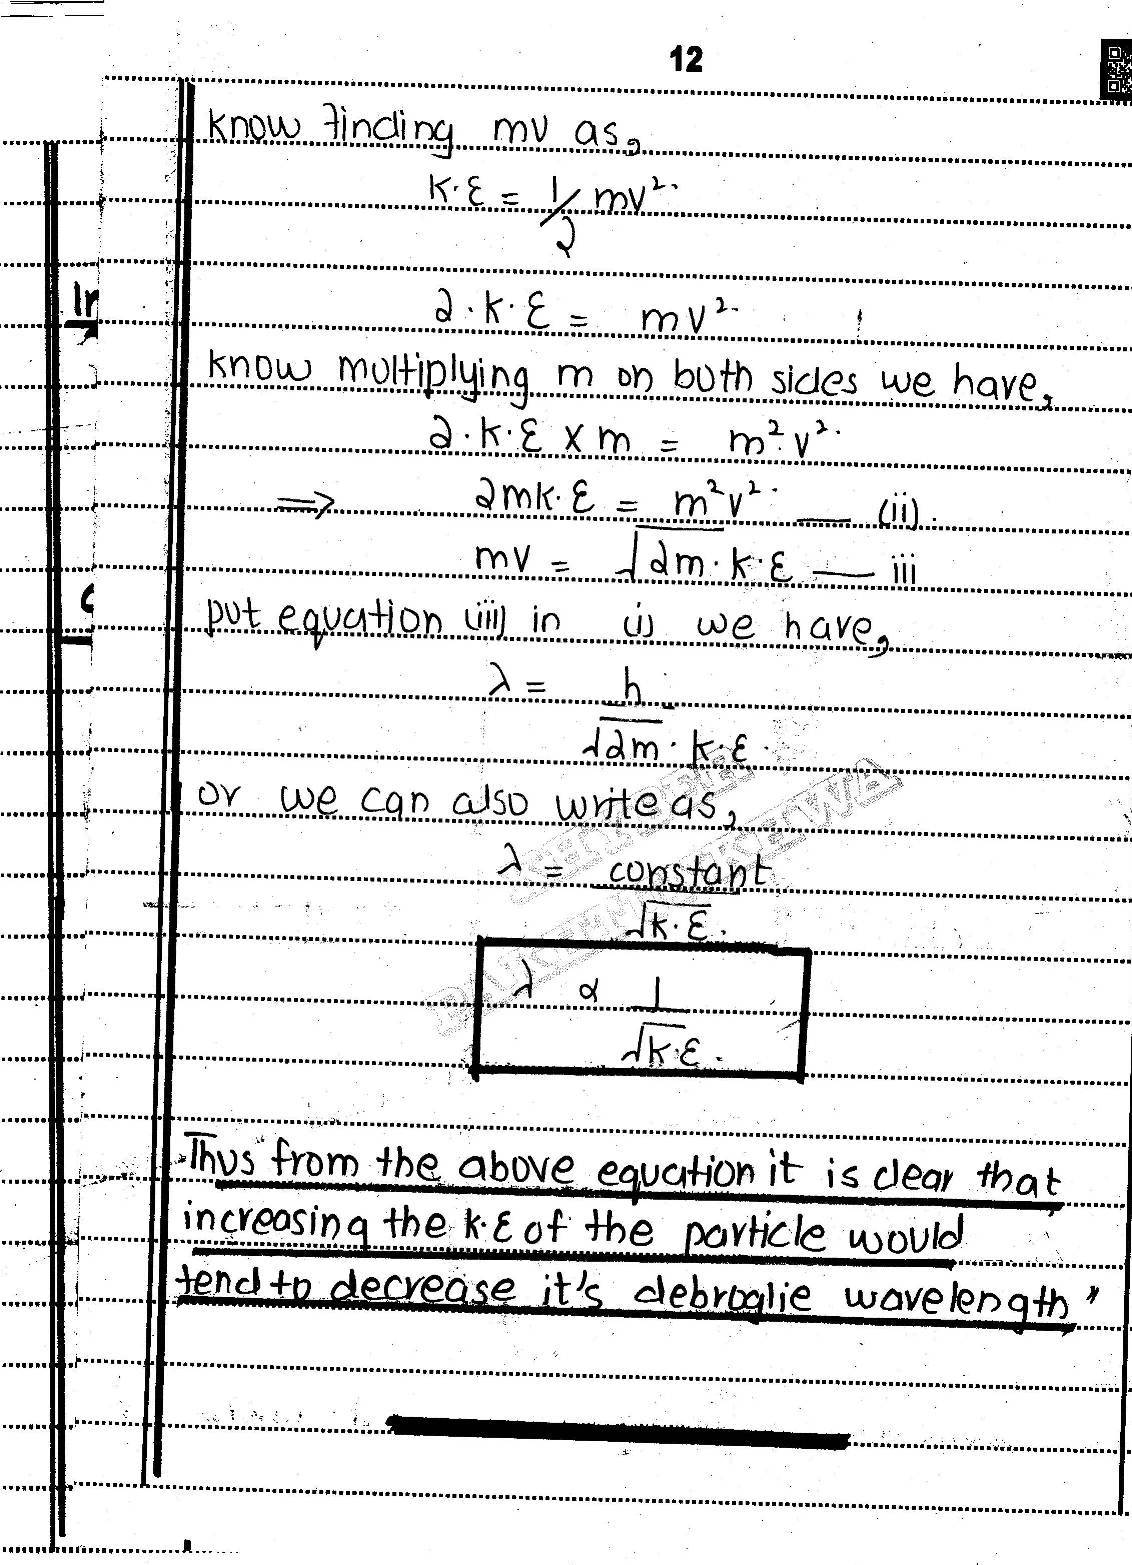 12
know finding mv as,
K.E = 1/2 mv².
2.K.E = mv².
know multiplying m on both sides we have,
2.K.E x m = m².v².
⇒ 2mK.E = m²v². — (ii).
mv = √2m.K.E — iii
put equation (iii) in (i) we have,
λ = h
√2m.K.E.
or we can also write as,
λ = constant
√K.E.
λ ∝ 1
√K.E.
Thus "from the above equation it is clear that,
increasing the K.E of the particle would
tend to decrease it's debroglie wavelength"